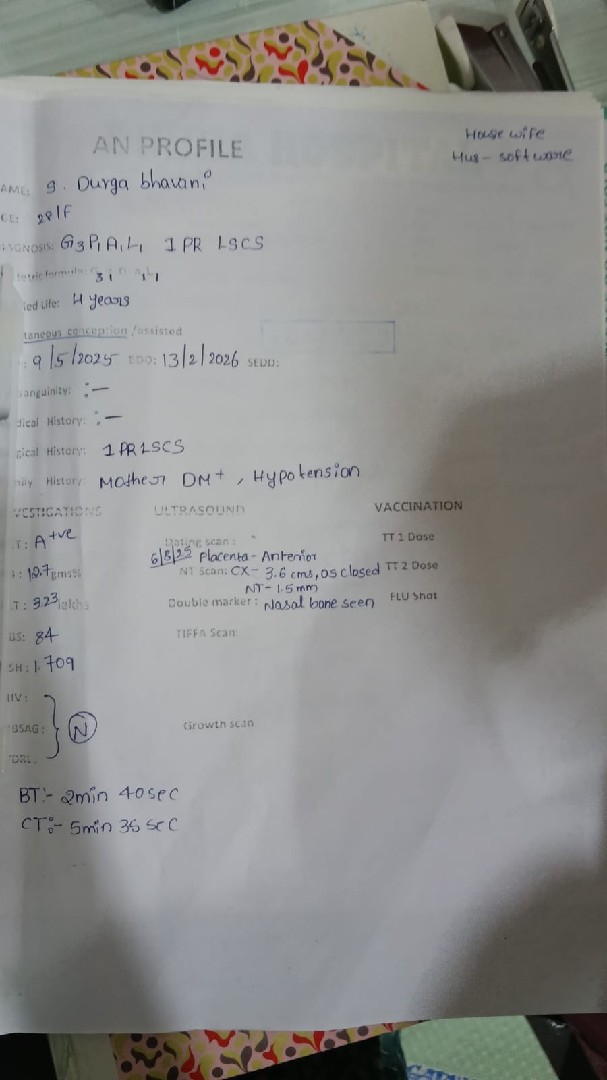 House wife
Hus - software
AN PROFILE
AME: g. Durga bhavani
GE: 28/F
GNOSIS: G3P1A1L1 1PR LSCS
ied Life: 4 years
taneous conception /assisted
: 9/5/2025 EDD: 13/2/2026 SEDD:
sanguinity: :-
dical History: :-
gical History: 1PR LSCS
ily History: Mother DM+, Hypotension
VESTIGATIONS ULTRASOUND VACCINATION
T: A+ve Dating scan: TT 1 Dose
6/8/25 Placenta- Anterior
: 10.7 gms% NT Scan: CX- 3.6 cms, os closed TT 2 Dose
NT- 1.5mm
T: 3.23 lakhs Double marker: Nasal bone seen FLU Shot
BS: 84 TIFFA Scan:
SH: 1.709
HIV:
BSAG: N Growth scan
VDRL:
BT:- 2min 40sec
CT:- 5min 36 sec